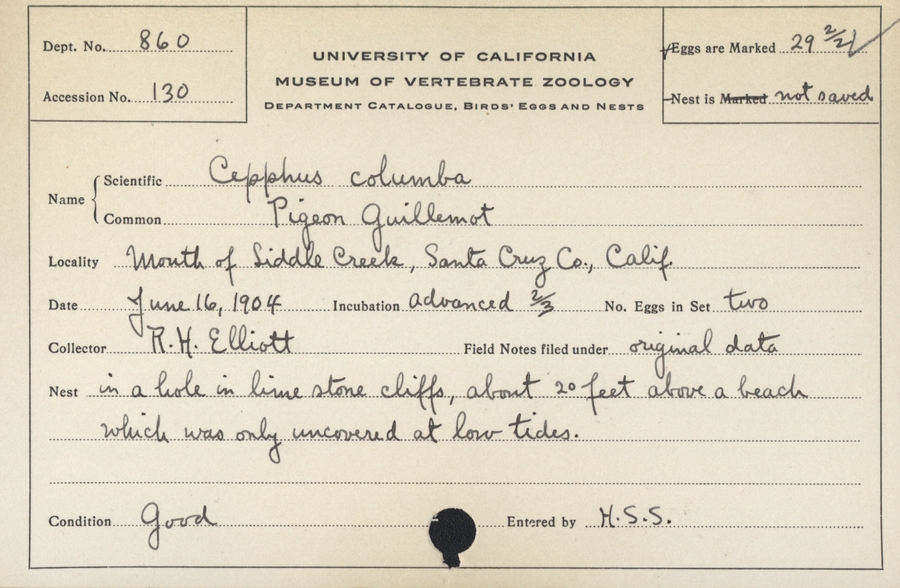 Dept. No. 860
Accession No. 130
UNIVERSITY OF CALIFORNIA
MUSEUM OF VERTEBRATE ZOOLOGY
DEPARTMENT CATALOGUE, BIRDS' EGGS AND NESTS
Eggs are Marked 29 2/2
Nest is Marked not saved
Name
Scientific Cepphus columba
Common Pigeon Guillemot
Locality Mouth of Liddle Creek, Santa Cruz Co., Calif.
Date June 16, 1904 Incubation advanced 2/3 No. Eggs in Set two
Collector R.H. Elliott Field Notes filed under original data
Nest in a hole in lime stone cliffs, about 20 feet above a beach
which was only uncovered at low tides.
Condition Good Entered by H.S.S.